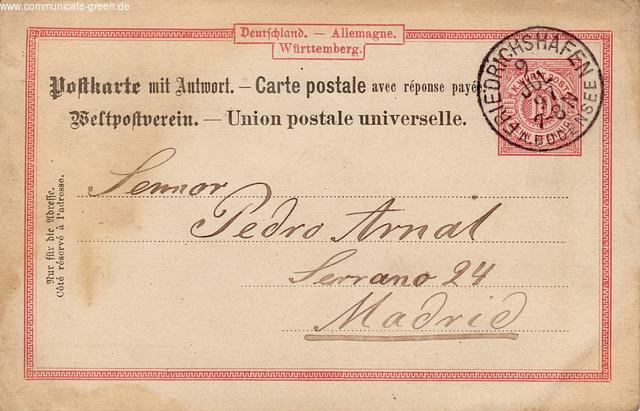 www.communicate-green.de
Deutschland. — Allemagne.
Württemberg.
Postkarte mit Antwort. — Carte postale avec réponse payée
Weltpostverein. — Union postale universelle.
FRIEDRICHSHAFEN
9
JUL
91
BODENSEE
Nur für die Adresse.
Côté réservé à l'adresse.
Sennor
Pedro Arnal
Serrano 24
Madrid